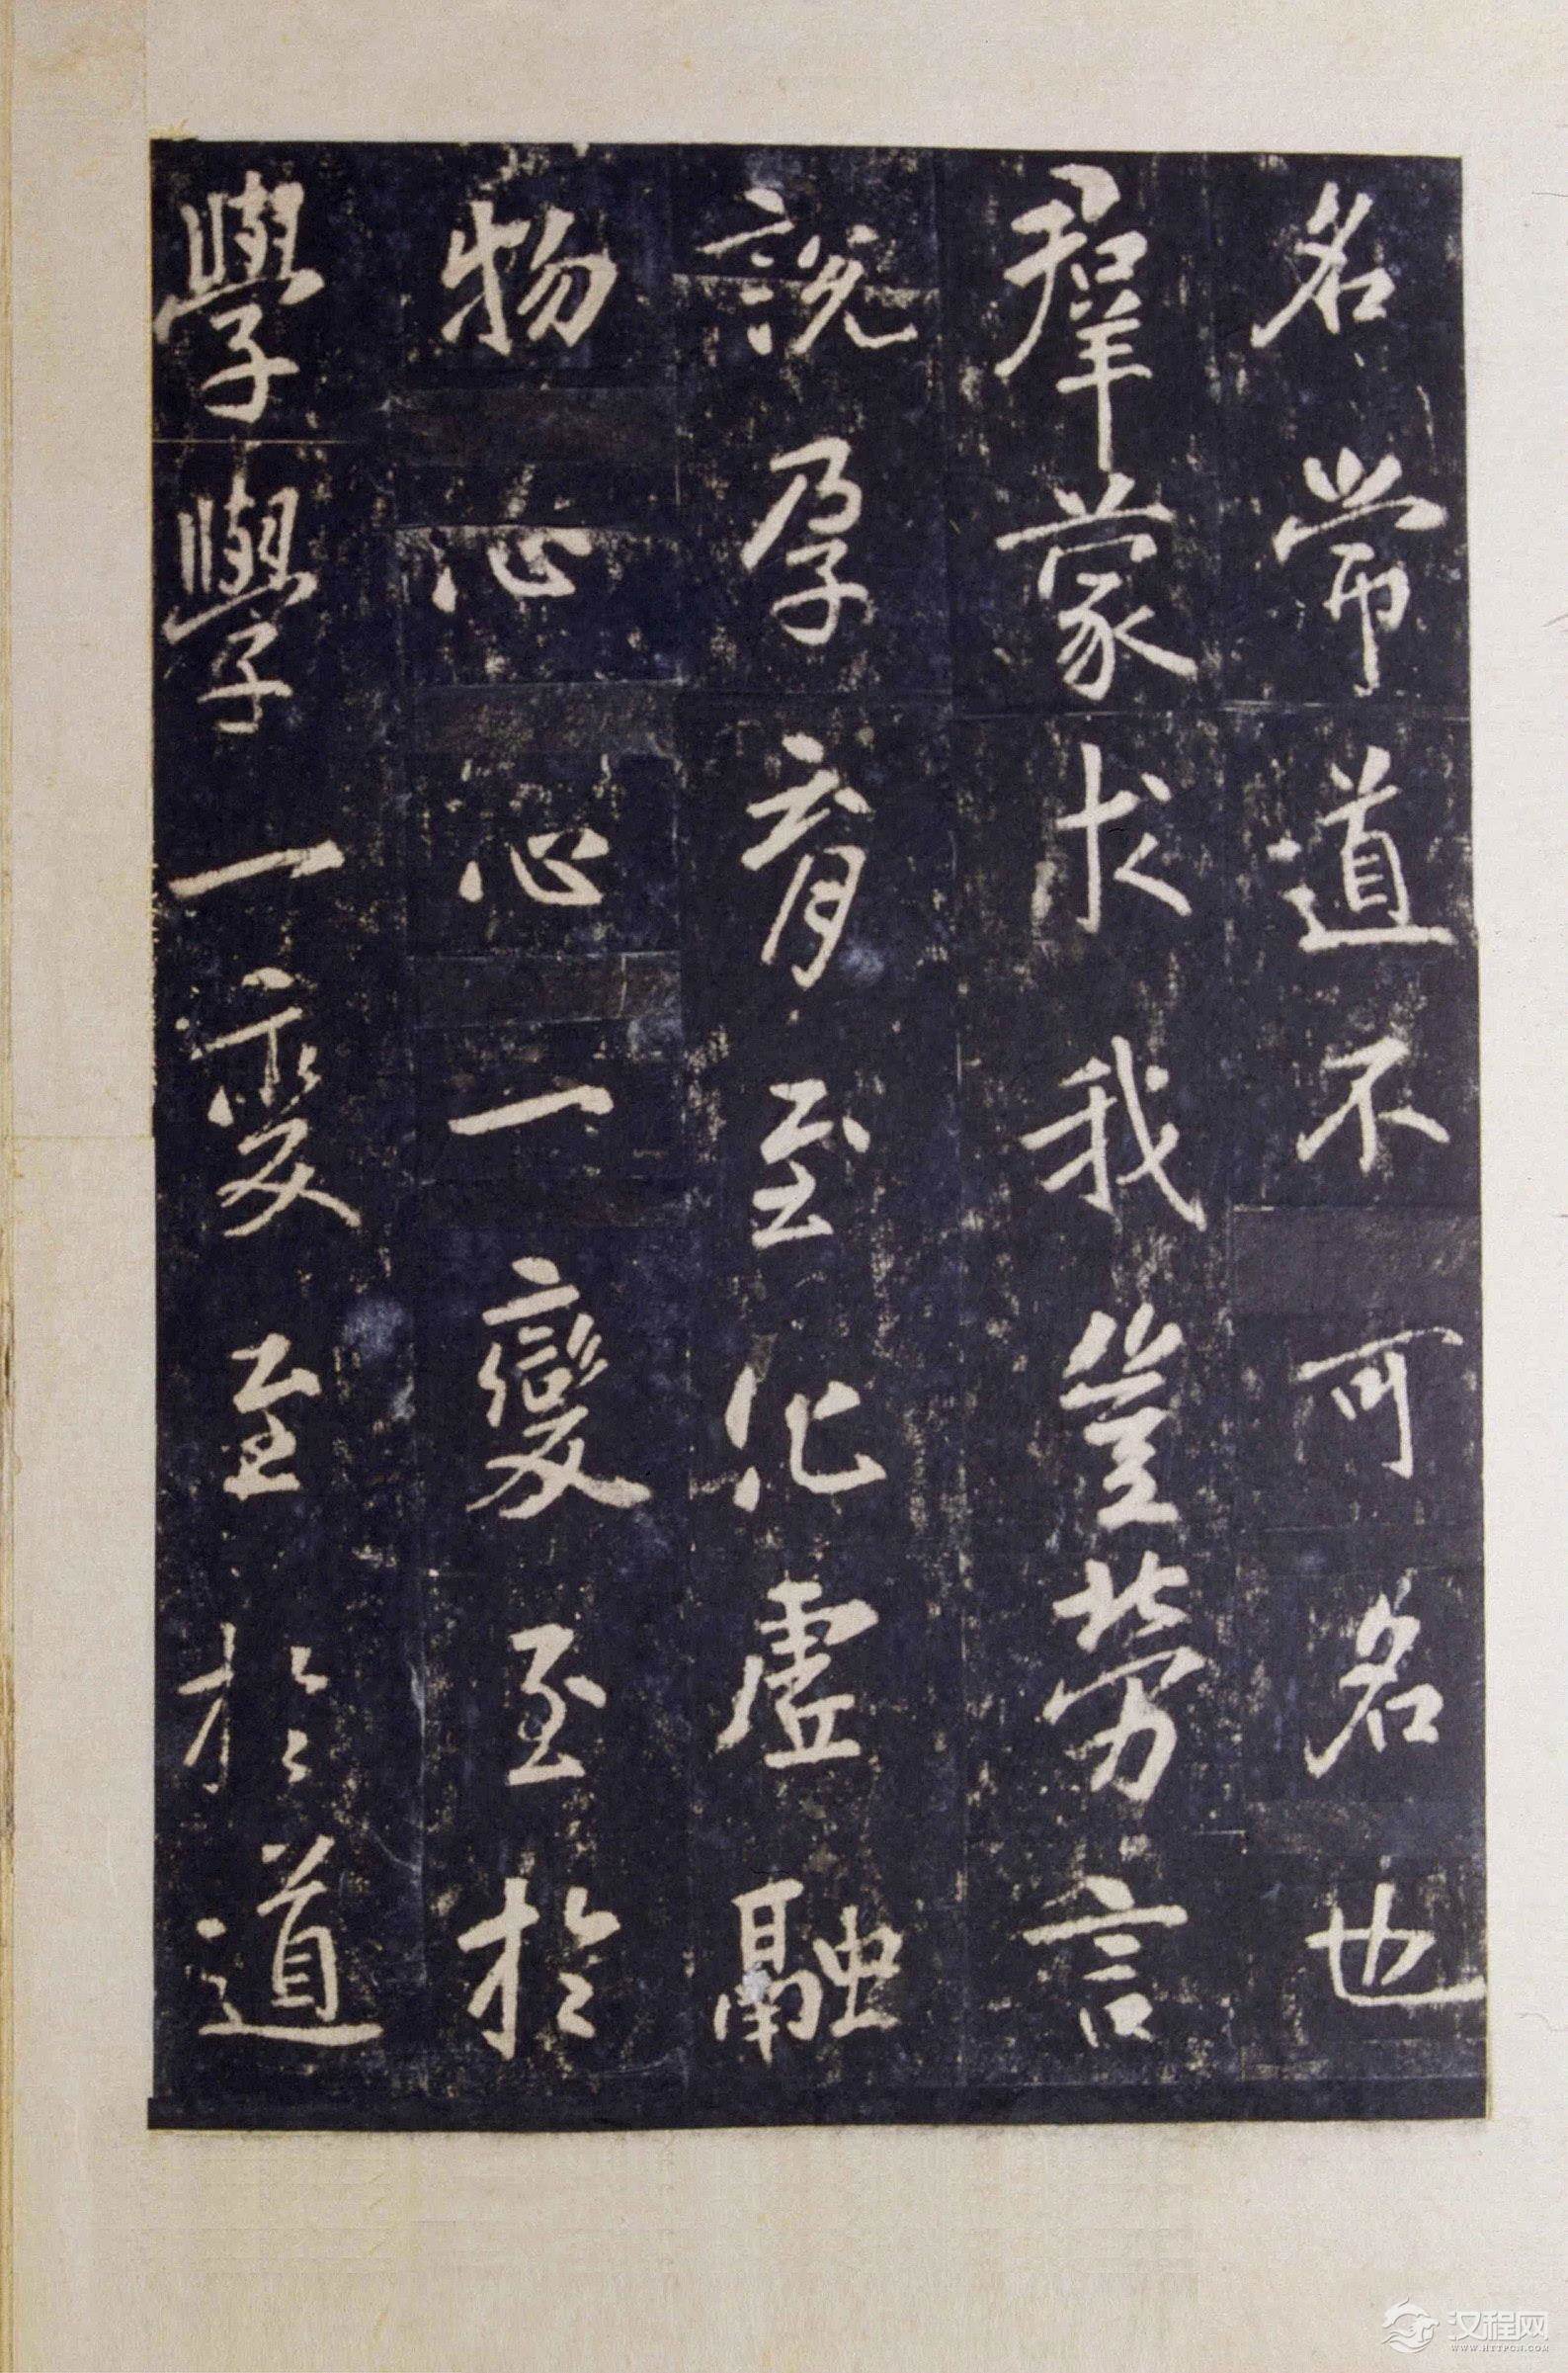 名常道不可名也
羣蒙求我豈勞言
說孕育至化虛融
物心心一變至於
學學一變至於道
汉程网
WWW.HTTPCN.COM